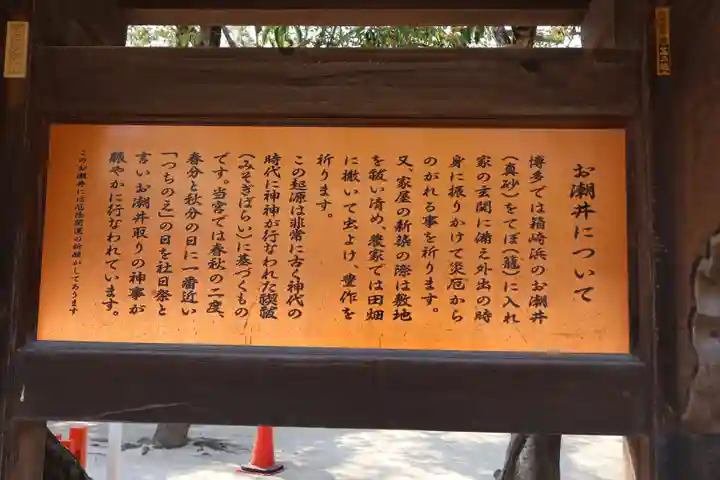 お潮井について
博多では箱崎浜のお潮井
（真砂）をてぼ（籠）に入れ
家の玄関に備え外出の時
身に振りかけて災厄から
のがれる事を祈ります。
又、家屋の新築の際は敷地
を祓い清め、農家では田畑
に撒いて虫よけ、豊作を
祈ります。
この起源は非常に古く神代の
時代に神神が行なわれた禊祓
（みそぎばらい）に基づくもの
です。当宮では春秋の二度、
春分と秋分の日に一番近い
「つちのえ」の日を社日祭と
言いお潮井取りの神事が
賑やかに行なわれています。
このお潮井には厄除開運の祈願がしてあります